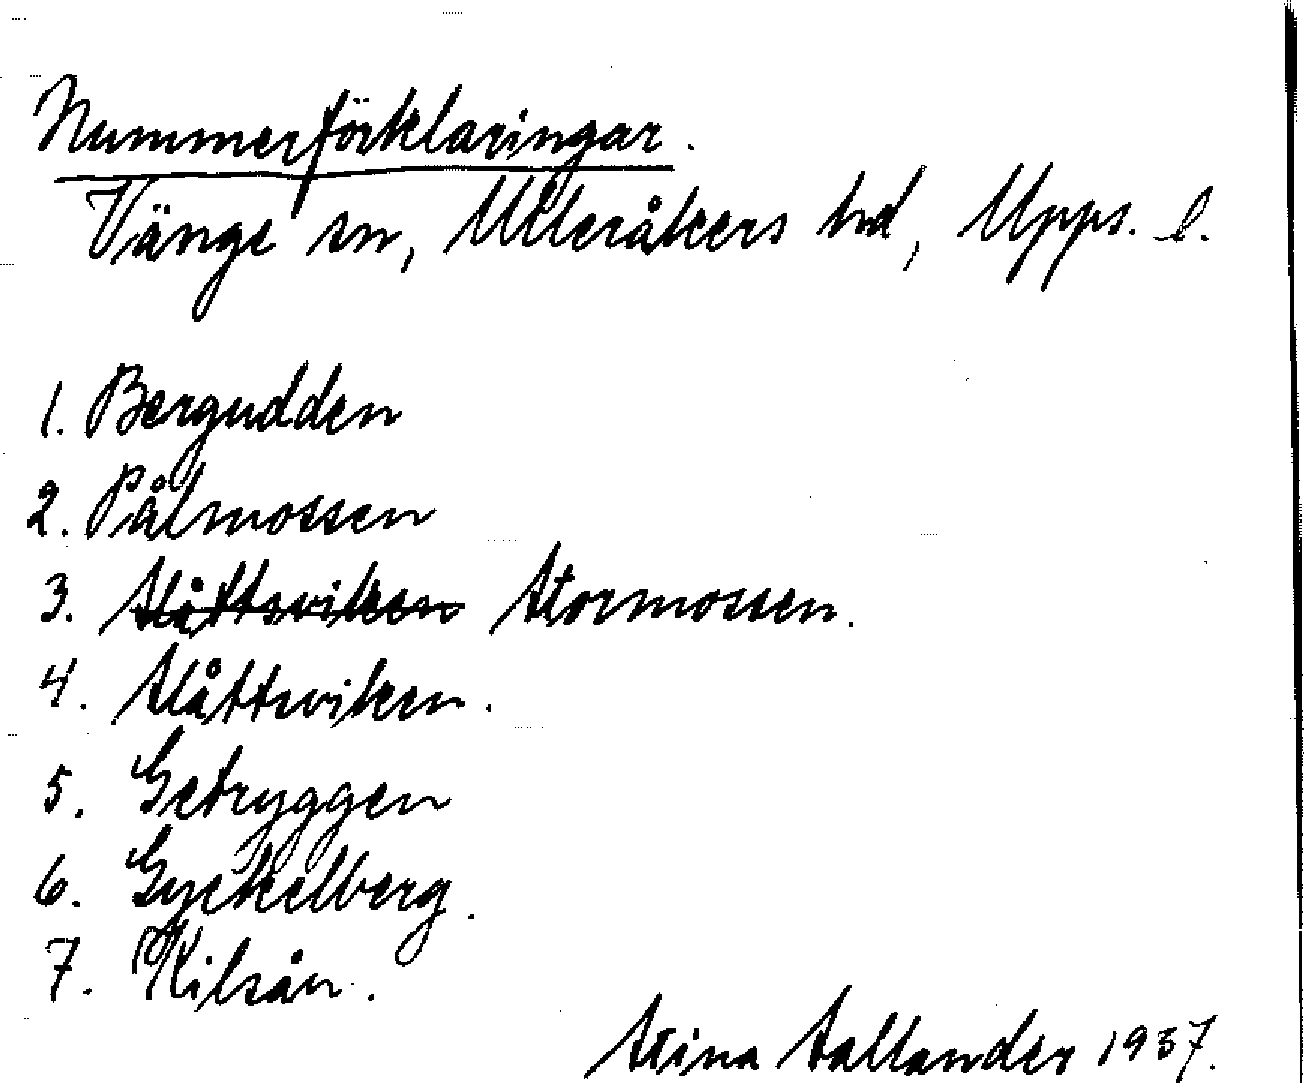 Nummerförklaringar.
Vänge sn, Ulleråkers hd, Upps. l.
1. Bergudden
2. Pålmossen
3. Slåttsviken Stormossen.
4. Slåttsviken.
5. Getryggen
6. Gyckelberg.
7. Kilsån.
Stina Sallander 1937.